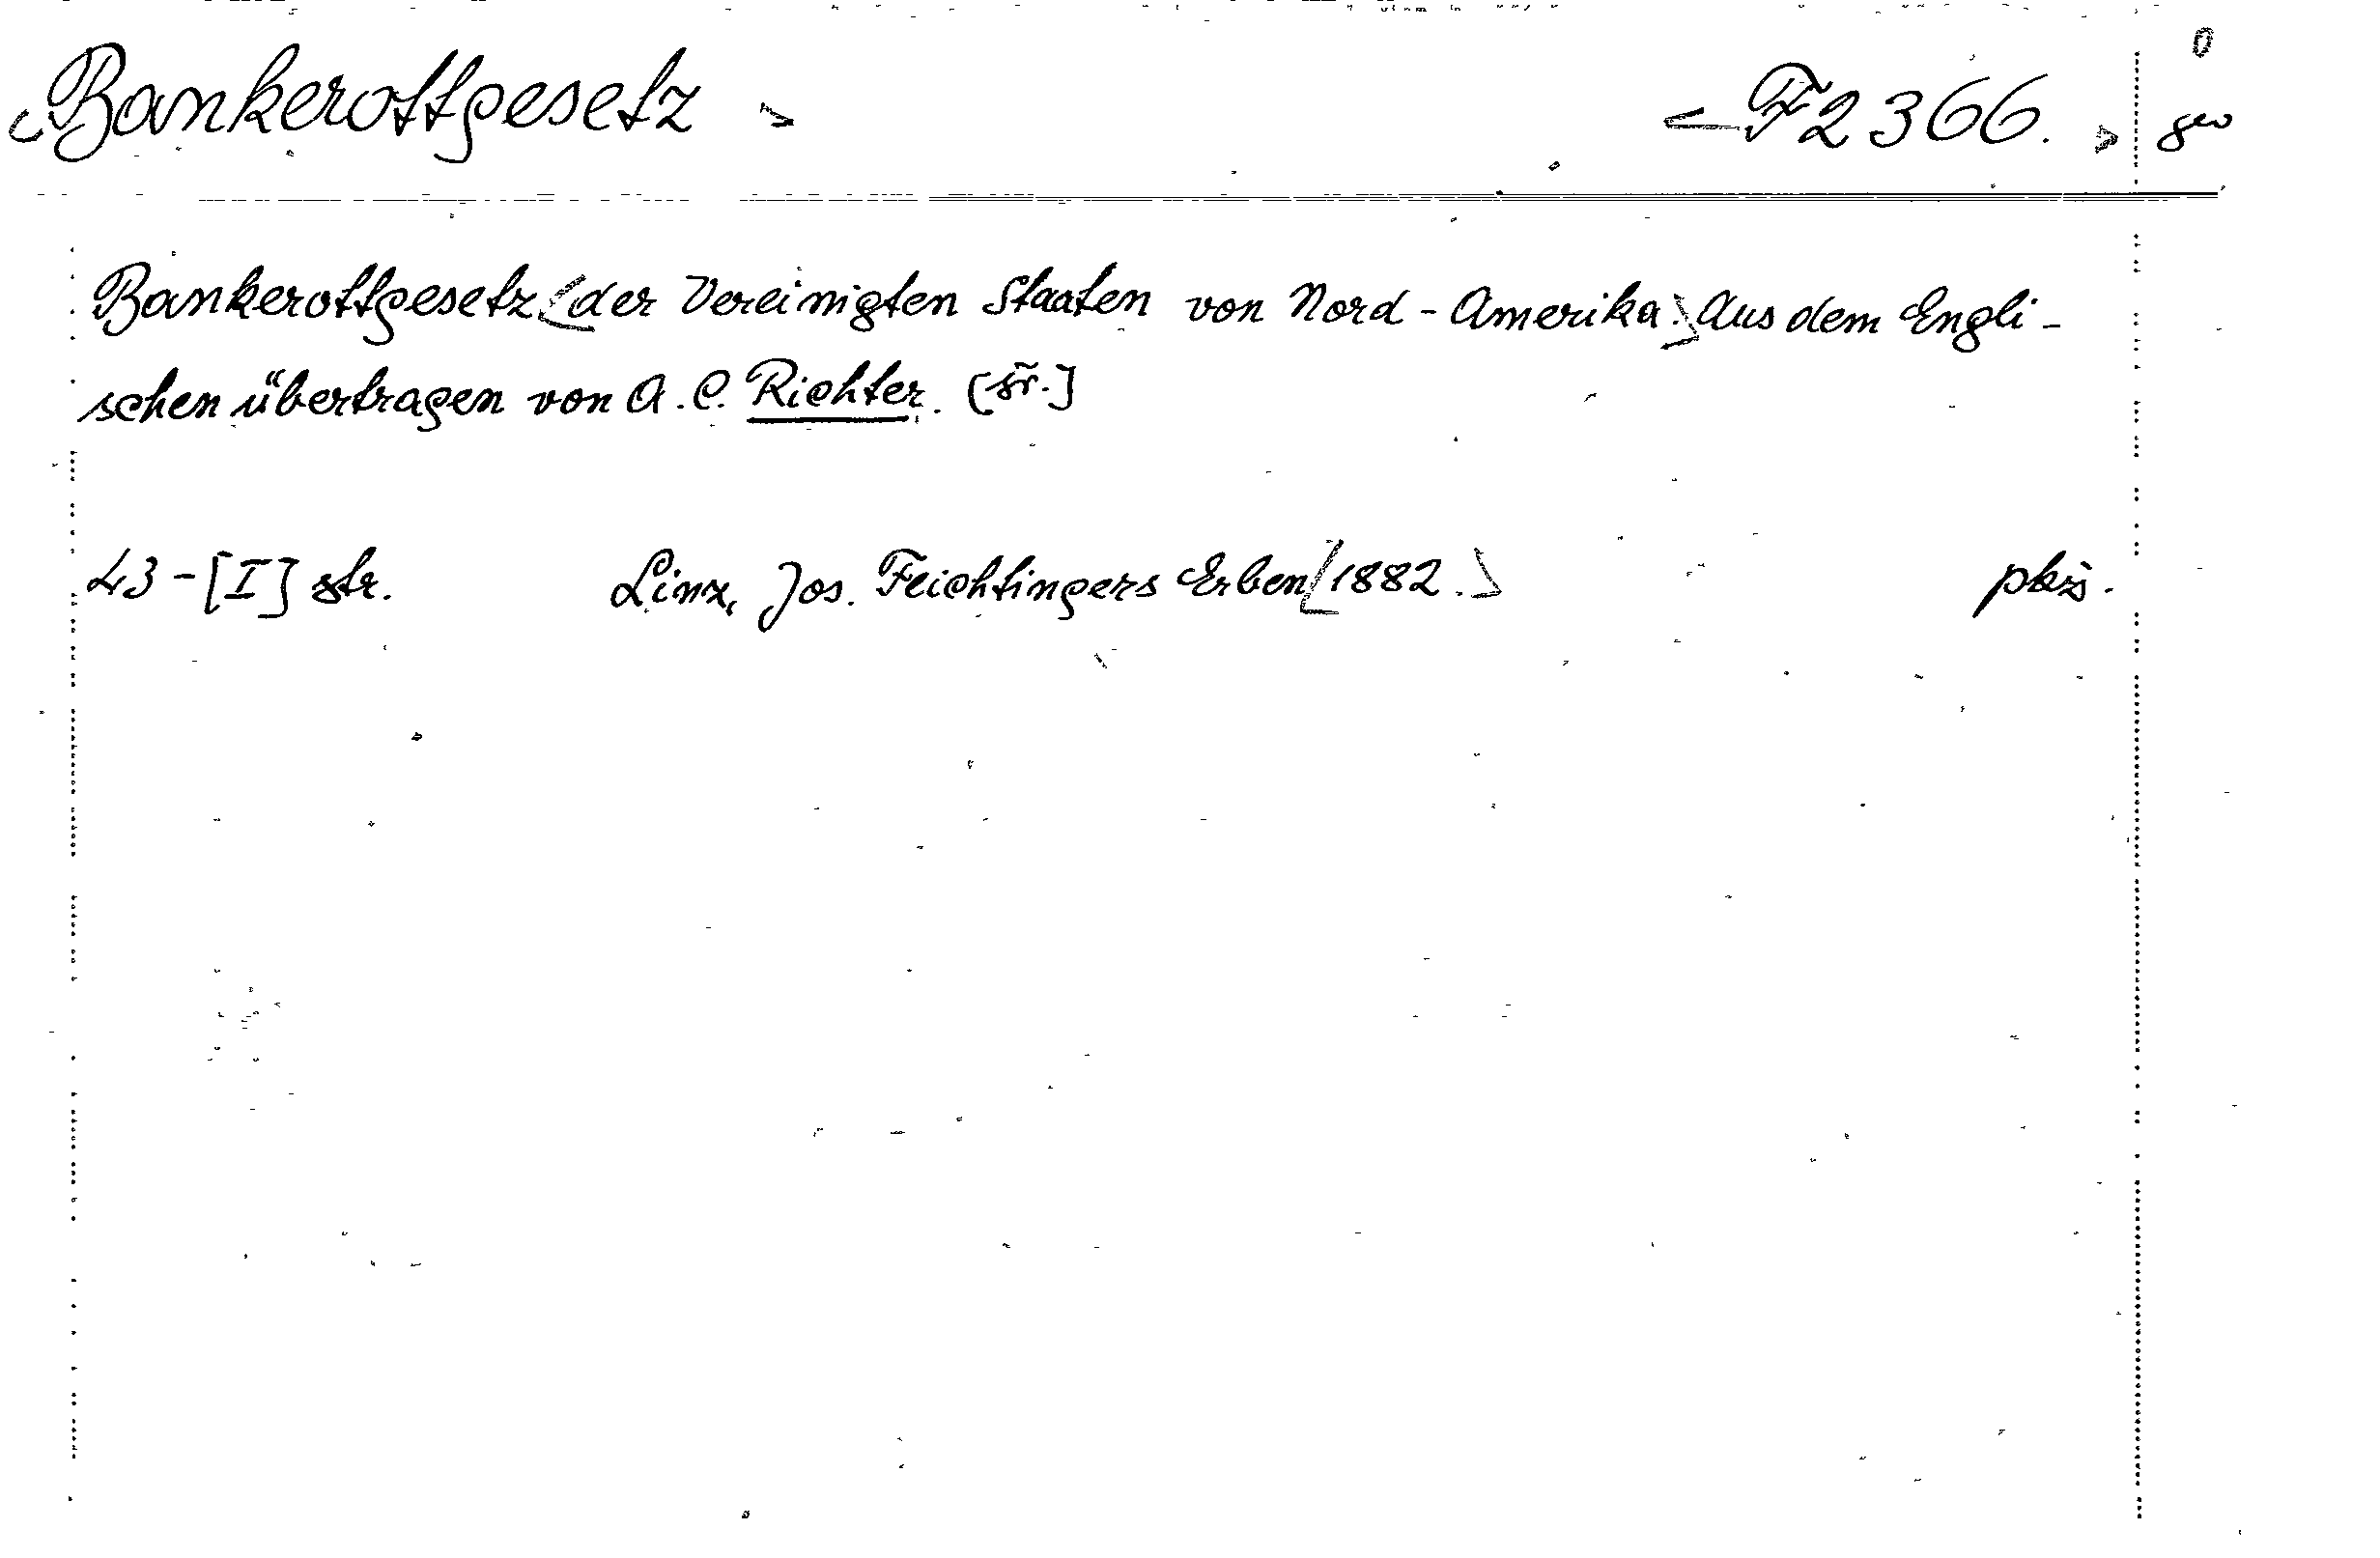 <Bankerottgesetz> <F 2366.> ger
Bankerottgesetz <der Vereinigten Staaten von Nord-Amerika.> Aus dem Engli-
schen übertragen von A. C. Richter. [šř.]
43-[I] str. Linz, Jos. Feichtingers Erben <1882.>